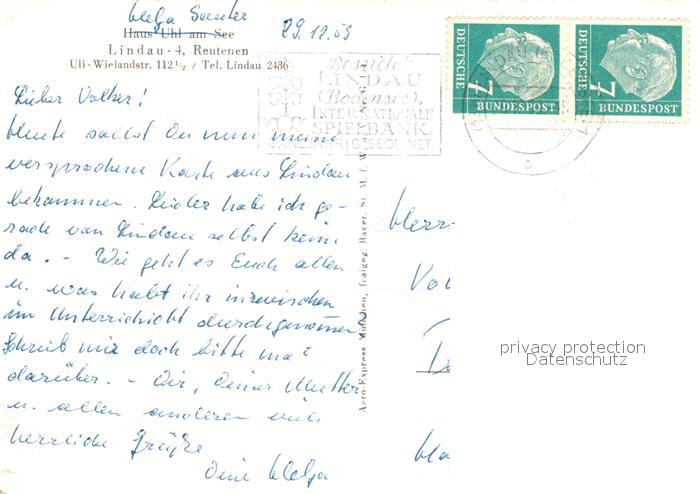 Helga Sauter
29.12.59
Haus Uhl am See
Lindau - 4, Reutenen
Uli-Wielandstr. 112 1/2 / Tel. Lindau 2436
DEUTSCHE
7
BUNDESPOST
DEUTSCHE
7
BUNDESPOST
Besucht
LINDAU
(Bodensee),
INTERNATIONALE
SPIELBANK
GANZJÄHRIG GEÖFFNET
Lieber Volker!
Heute sollst Du nun meine
versprochene Karte aus Lindau
bekommen. Leider habe ich ge-
rade von Lindau selbst keine
da. - Wie geht es Euch allen
u. was habt ihr inzwischen
im Unterrichicht durchgenommen?
Schreib mir doch bitte mal
darüber. - Dir, Deiner Mutter
u. allen anderen viele
herzliche Grüße
Deine Helga
Aero-Express München, freigeg. Bayer. St. M. f. W.
Herr
Vol
privacy protection
Datenschutz